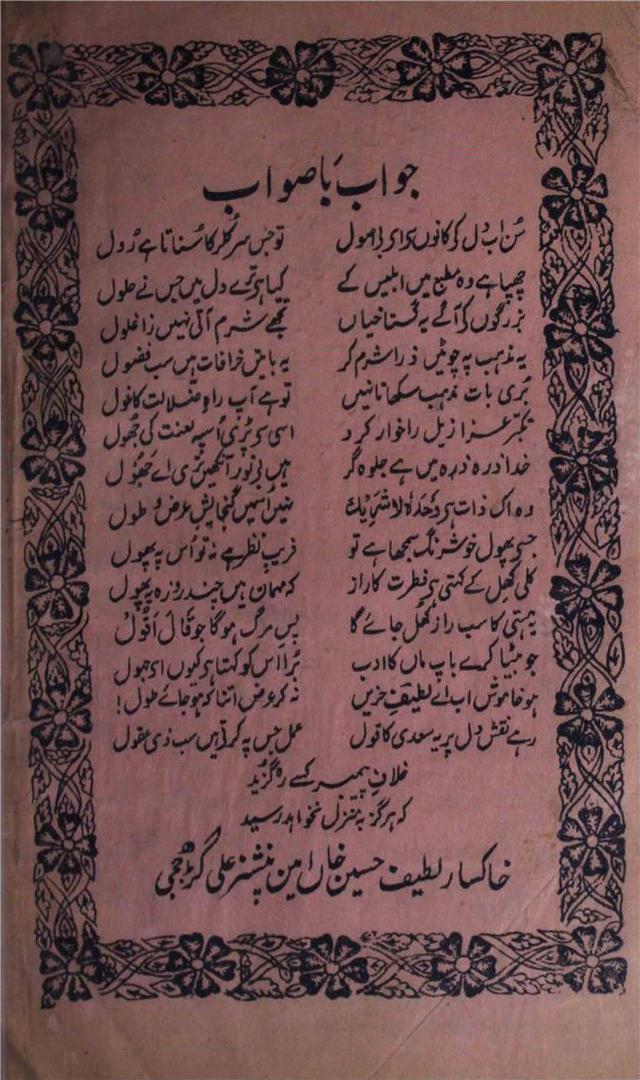 جواب باصواب
سُن اب دل کے کانوں سے اے بے اصول تو جس سرکلر کا سُناتا ہے رول
چھپا ہے وہ مطبع میں ابلیس کے کیا ہے ترے دل میں جس نے حلول
بزرگوں کے آگے یہ گستاخیاں تجھے شرم آتی نہیں زاغلول
یہ مذہب پہ چوٹیں ذرا شرم کر یہ باتیں خرافات ہیں سب فضول
بُری بات مذہب سکھاتا نہیں تو ہے آپ راہِ ضلالت کا غول
تکبر عزازیل را خوار کرد اسی سے پڑی اُسپہ لعنت کی جھول
خدا ذرہ ذرہ میں ہے جلوہ گر ہیں بے نور آنکھیں تری اے جہول
وہ اک ذات ہے وحدہٗ لاشریک نہیں اسمیں گنجایشِ عرض و طول
جسے پھول خوشرنگ سمجھا ہے تو فریبِ نظر ہے نہ تو اُس پہ پھول
کلی کھِل کے کہتی ہے فطرت کا راز کہ مہمان ہیں چند روزہ یہ پھول
یہ ہستی کا سب راز کھُل جائے گا پسِ مرگ ہوگا جو قال اقول
جو بیٹا کرے باپ ماں کا ادب بُرا اس کو کہتا ہے کیوں اے جہول
ہو خاموش اب اے لطیفِ حزیں نہ کر عرض اتنا کہ ہو جائے طول!
رہے نقش دل پر یہ سعدی کا قول عمل جس پہ کرتے ہیں سب ذی عقول
خلافِ پیمبر کسے رہ گزید
کہ ہرگز بمنزل نخواہد رسید
خاکسار لطیف حسین خاں امین پنشنر علی گڑھ ججی